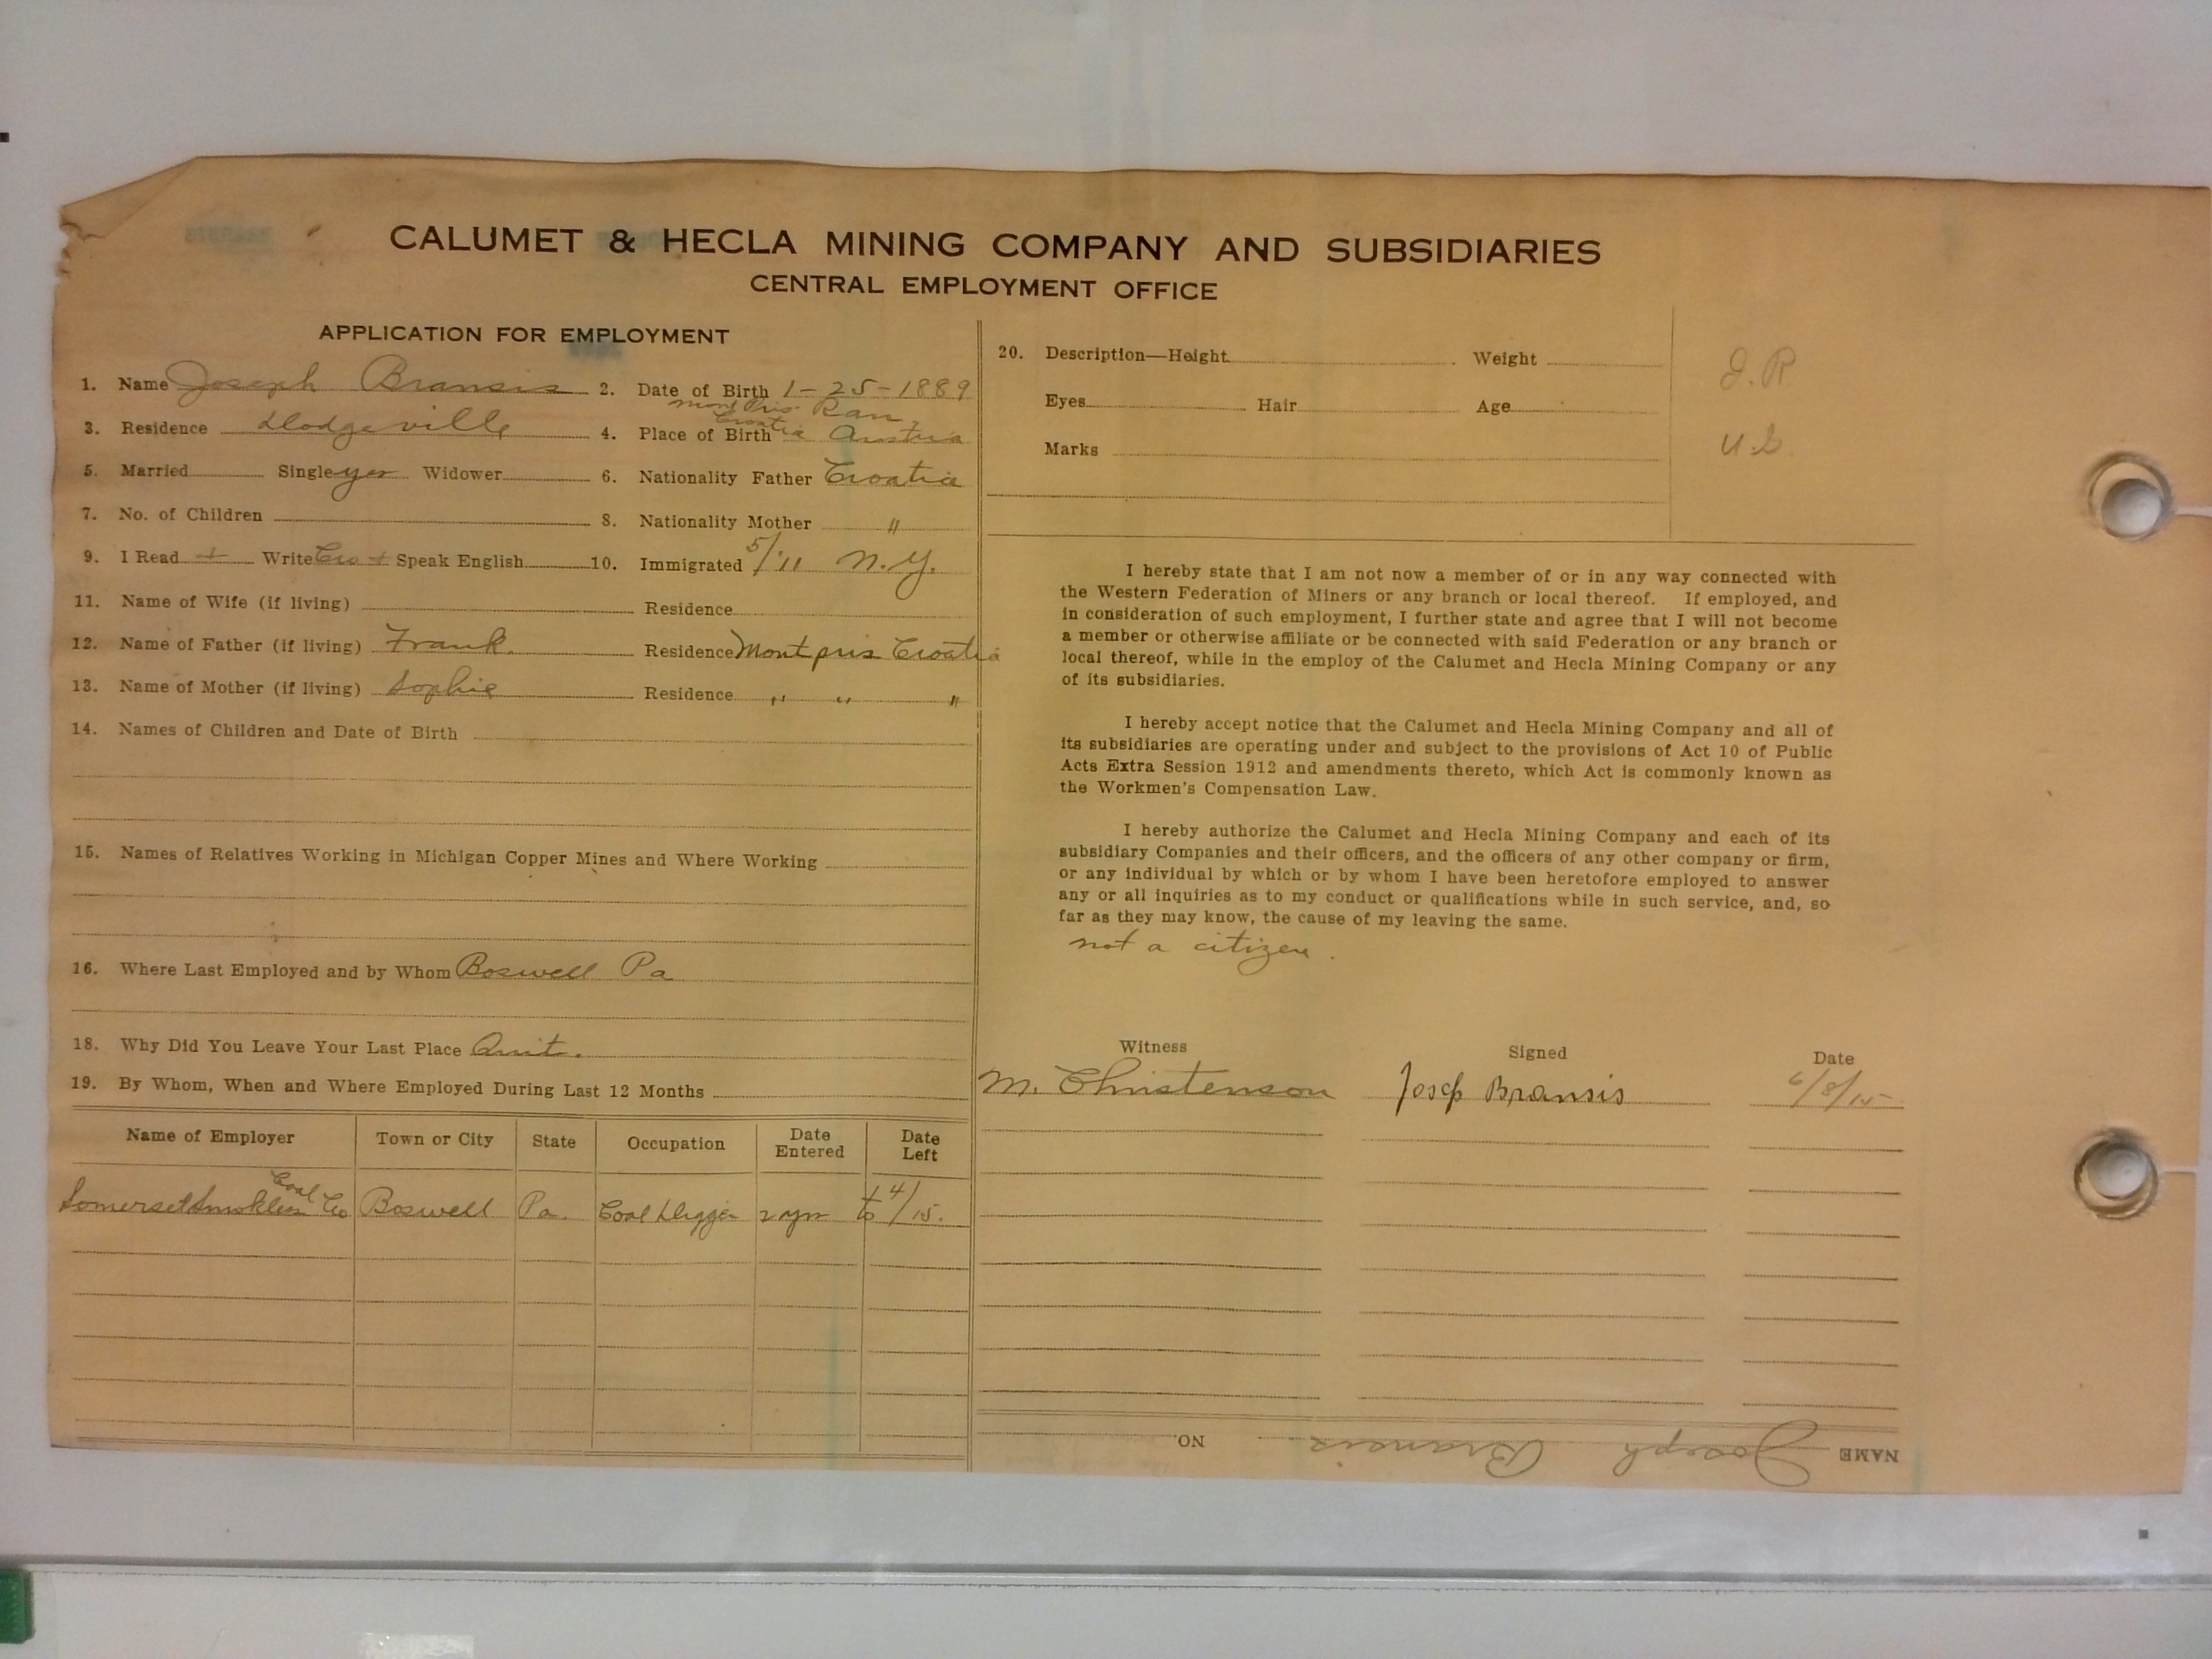 CALUMET & HECLA MINING COMPANY AND SUBSIDIARIES
CENTRAL EMPLOYMENT OFFICE
APPLICATION FOR EMPLOYMENT
1. Name Joseph Bransis 2. Date of Birth 1-25-1889
3. Residence Dodgeville 4. Place of Birth Croatia Austria
5. Married Single yes Widower 6. Nationality Father Croatia
7. No. of Children 8. Nationality Mother "
9. I Read + Write Cro + Speak English 10. Immigrated 5/'11 N.Y.
11. Name of Wife (if living) Residence
12. Name of Father (if living) Frank. Residence Montpris Croatia
13. Name of Mother (if living) Sophie Residence " " "
14. Names of Children and Date of Birth
15. Names of Relatives Working in Michigan Copper Mines and Where Working
16. Where Last Employed and by Whom Boswell Pa
18. Why Did You Leave Your Last Place Quit.
19. By Whom, When and Where Employed During Last 12 Months
Name of Employer Town or City State Occupation Date Entered Date Left
Somerset Smokless Coal Co Boswell Pa. Coal Digger 2 yrs to 4/15.
20. Description—Height Weight
Eyes Hair Age
Marks
J.R.
I hereby state that I am not now a member of or in any way connected with
the Western Federation of Miners or any branch or local thereof. If employed, and
in consideration of such employment, I further state and agree that I will not become
a member or otherwise affiliate or be connected with said Federation or any branch or
local thereof, while in the employ of the Calumet and Hecla Mining Company or any
of its subsidiaries.
I hereby accept notice that the Calumet and Hecla Mining Company and all of
its subsidiaries are operating under and subject to the provisions of Act 10 of Public
Acts Extra Session 1912 and amendments thereto, which Act is commonly known as
the Workmen's Compensation Law.
I hereby authorize the Calumet and Hecla Mining Company and each of its
subsidiary Companies and their officers, and the officers of any other company or firm,
or any individual by which or by whom I have been heretofore employed to answer
any or all inquiries as to my conduct or qualifications while in such service, and, so
far as they may know, the cause of my leaving the same.
not a citizen.
Witness Signed Date
M. Christenson Josep Bransis 6/8/15
NAME Joseph Bransis NO.